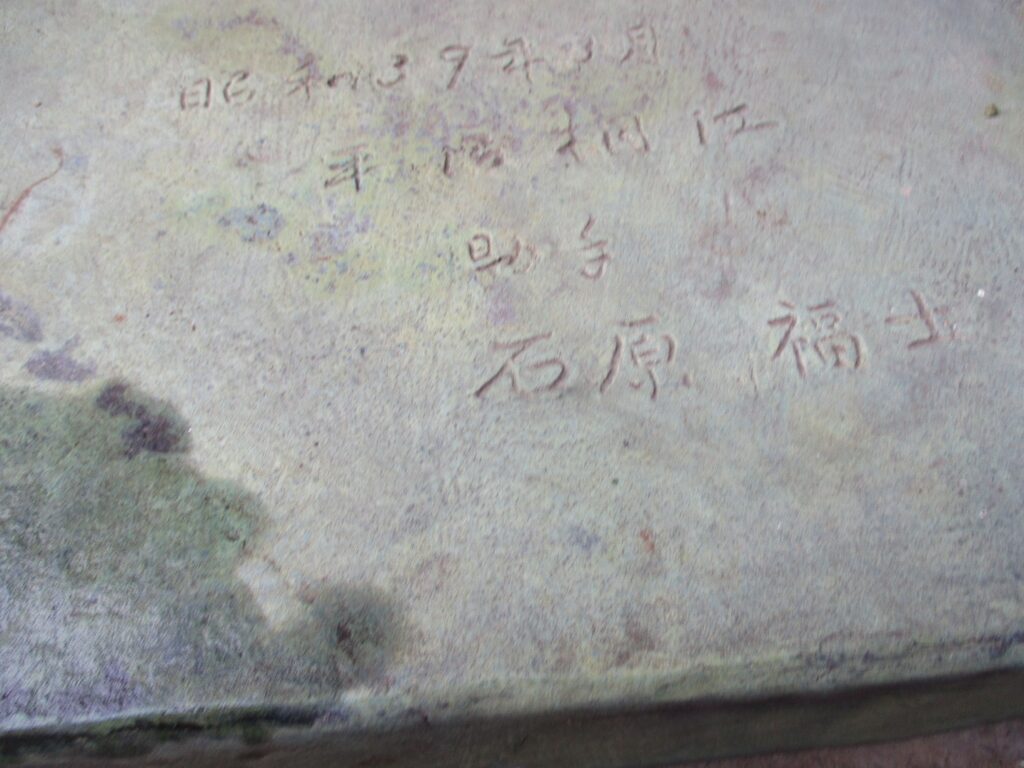 昭和39年3月
平 江
助手
石原 福士